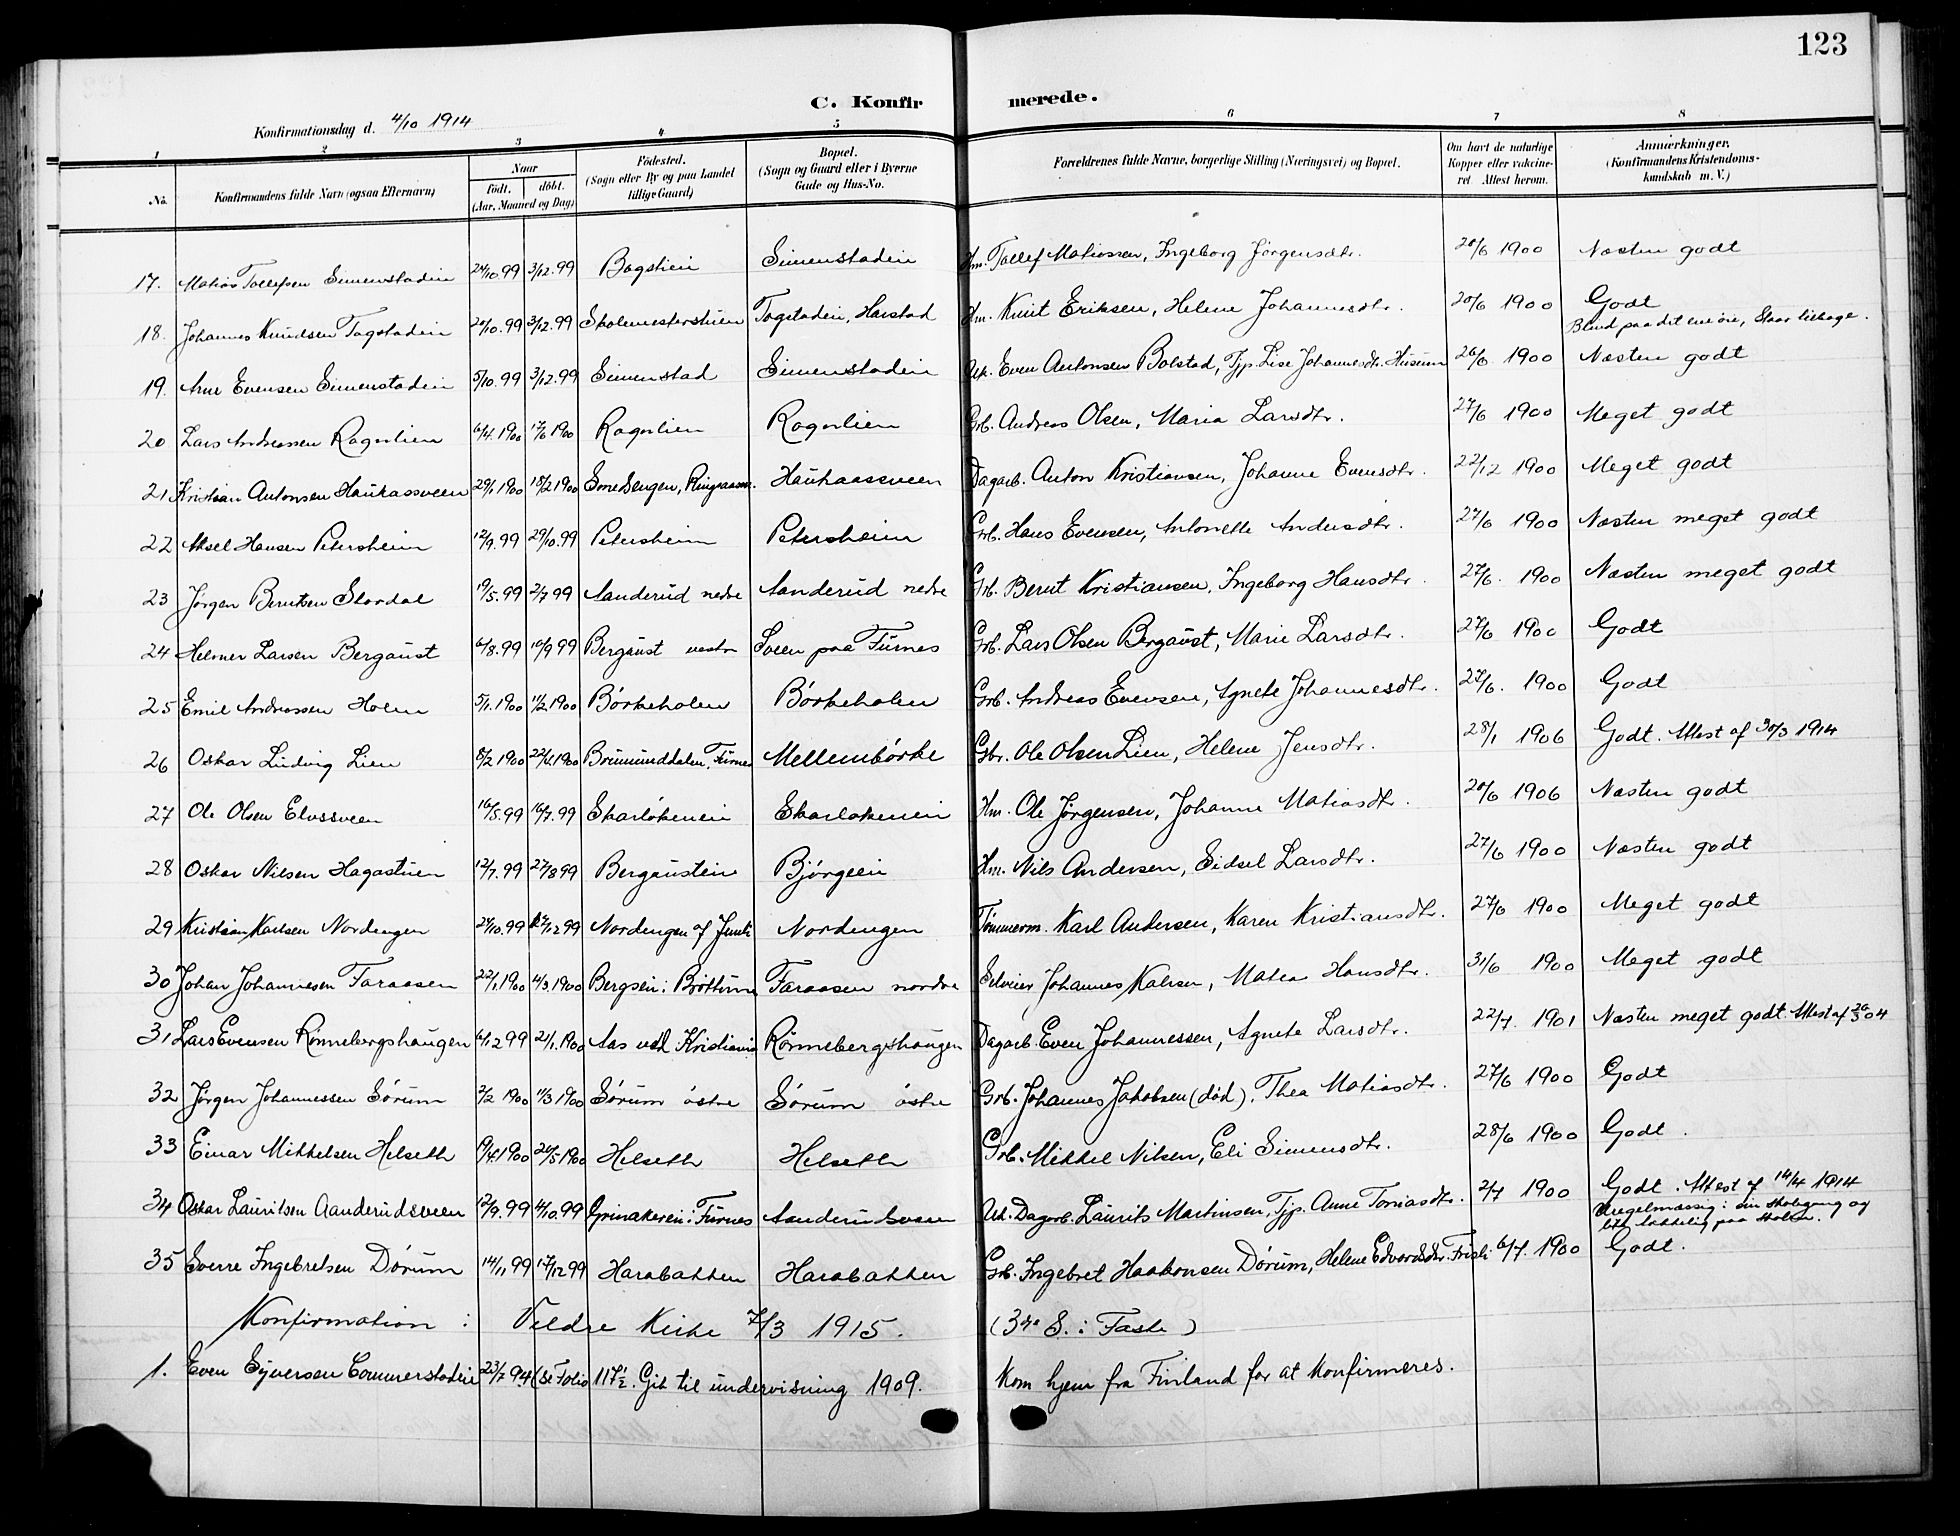 123
C. Konfirmerede.
Konfirmationsdag d. 4/10 1914
1 2 3 4 5 6 7 8
No. Konfirmandens fulde Navn (ogsaa Efternavn) Naar født. døbt. (Aar, Maaned og Dag) Fødested. (Sogn eller By og paa Landet tillige Gaard) Bopæl. (Sogn og Gaard eller i Byerne Gade og Hus-No. Forældrenes fulde Navne, borgerlige Stilling (Næringsvei) og Bopæl. Om havt de naturlige Kopper eller vakcineret. Attest herom. Anmærkninger. (Konfirmandens Kristendomskundskab m. V.)
17. Matias Tollefsen Simenstadein 24/10.99 3/12.99 Bagstien Simenstadein Hm. Tollef Matiassen, Ingeborg Jørgensdtr. 28/6 1900 Næsten godt
18. Johannes Knudsen Tagstadein 20/10.99 3/12.99 Skolemesterstuen Tagstadein, Harstad Hm. Knut Eriksen, Helene Johannesdtr. 20/6 1900 Godt
Blind paa det ene øie, Staar tilbage.
19. Arne Evensen Simenstadein 5/10.99 3/12.99 Simenstad Simenstadein Uk. Even Antonsen Bolstad, Tjp. Lise Johannesdtr. Husum 26/6 1900 Næsten godt
20 Lars Andreassen Rognlien 6/4.1900 17/6 1900 Rognlien Rognlien Grb. Andreas Olsen, Maria Larsdtr. 27/6 1900 Meget godt
21 Kristian Antonsen Haukaassveen 29/1.1900 18/2 1900 Smedengen, Ringsaker. Haukaassveen Dagarb. Anton Kristiansen, Johanne Evensdtr. 22/12 1900 Meget godt
22 Aksel Hansen Petersheim 12/9.99 29/10.99 Petersheim Petersheim Grb. Hans Evensen, Antonette Andersdtr. 27/6 1900 Næsten meget godt
23 Jørgen Berntsen Stordal 19/5.99 2/7 99 Aanderud nedre Aanderud nedre Grb. Bernt Kristiansen, Ingeborg Hansdtr. 27/6. 1900 Næsten meget godt
24 Helmer Larsen Bergaust 6/8.99 10/9 99 Bergaust vestre Sveen paa Furnes Grb. Lars Olsen Bergaust, Marie Larsdtr. 27/6 1900 Godt
25 Emil Andreassen Holen 5/1.1900 11/2.1900 Børkeholen Børkeholen Grb. Andreas Evensen, Agnete Johannesdtr. 27/6. 1900 Godt
26 Oskar Ludvig Lien 8/2 1900 22/4.1900 Brumunddalen, Furnes Mellembørke Gbr. Ole Olsen Lien, Helene Jensdtr. 28/1 1906 Godt. Attest af 30/3 1914
27 Ole Olsen Elvssveen 16/5.99 16/7.99 Skarløkeneie Skarløkeneie Hm. Ole Jørgensen, Johanne Matiasdtr. 20/6 1906 Næsten godt
28 Oskar Nilsen Hagastuen 12/7.99 27/8 99 Bergausteie Bjørgeeie Hm. Nils Andersen, Sidsel Larsdtr. 27/6 1900 Næsten godt
29 Kristian Karlsen Nordengen 24/10.99 /12 99 Nordengen af Nordengen Tømmerm. Karl Andersen, Karen Kristiansdtr. 27/6 1900 Meget godt
30 Johan Johannesen Faraasen 22/1.1900 4/3.1900 Bergseie i Brøttum Faraasen nordre Selveier Johannes Karlsen, Matea Hansdtr. 31/6 1900 Meget godt
31 Lars Evensen Rønnebergshaugen 6/12 99 21/1.1900 Aas ved Kristiania Rønnebergshaugen Dagarb. Even Johannessen, Agnete Larsdtr. 22/7. 1901 Næsten meget godt. Attest af 20/3 04
32 Jørgen Johannessen Sørum 2/2 1900 11/3 1900 Sørum østre Sørum østre Grb. Johannes Jakobsen (død). Thea Matiasdtr. 27/6 1900 Godt
33 Einar Mikkelsen Helseth 9/4.1900 20/5 1900 Helseth Helseth Grb. Mikkel Nilsen, Eli Simensdtr. 28/6 1900 Godt.
34 Oskar Lauritsen Aanderudsveen 12/9.99 14/10.99 Grinakereie i Furnes Aanderudsveen Uk. Dagarb. Laurits Martinsen, Tjp. Anne Toniasdtr. 2/7 1900 Godt. Attest af 14/4 1914
Uregelmæssig i sin skolegang og
lite lakkelig paa skolen.
35 Sverre Ingebretsen Dørum 14/11 99 17/12 99 Harabakken Harabakken Grb. Ingebret Haakonsen Dørum, Helene Edvardsdtr. Frisli 6/7. 1900 Godt.
Konfirmation: Veldre Kirke 7/3 1915. (3die S. i Faste)
1. Even Syversen Commerstadeie 23/7 94 (se Folio 117 1/2. Gik til undervisning 1909. Kom hjem fra Finland for at konfirmeres.